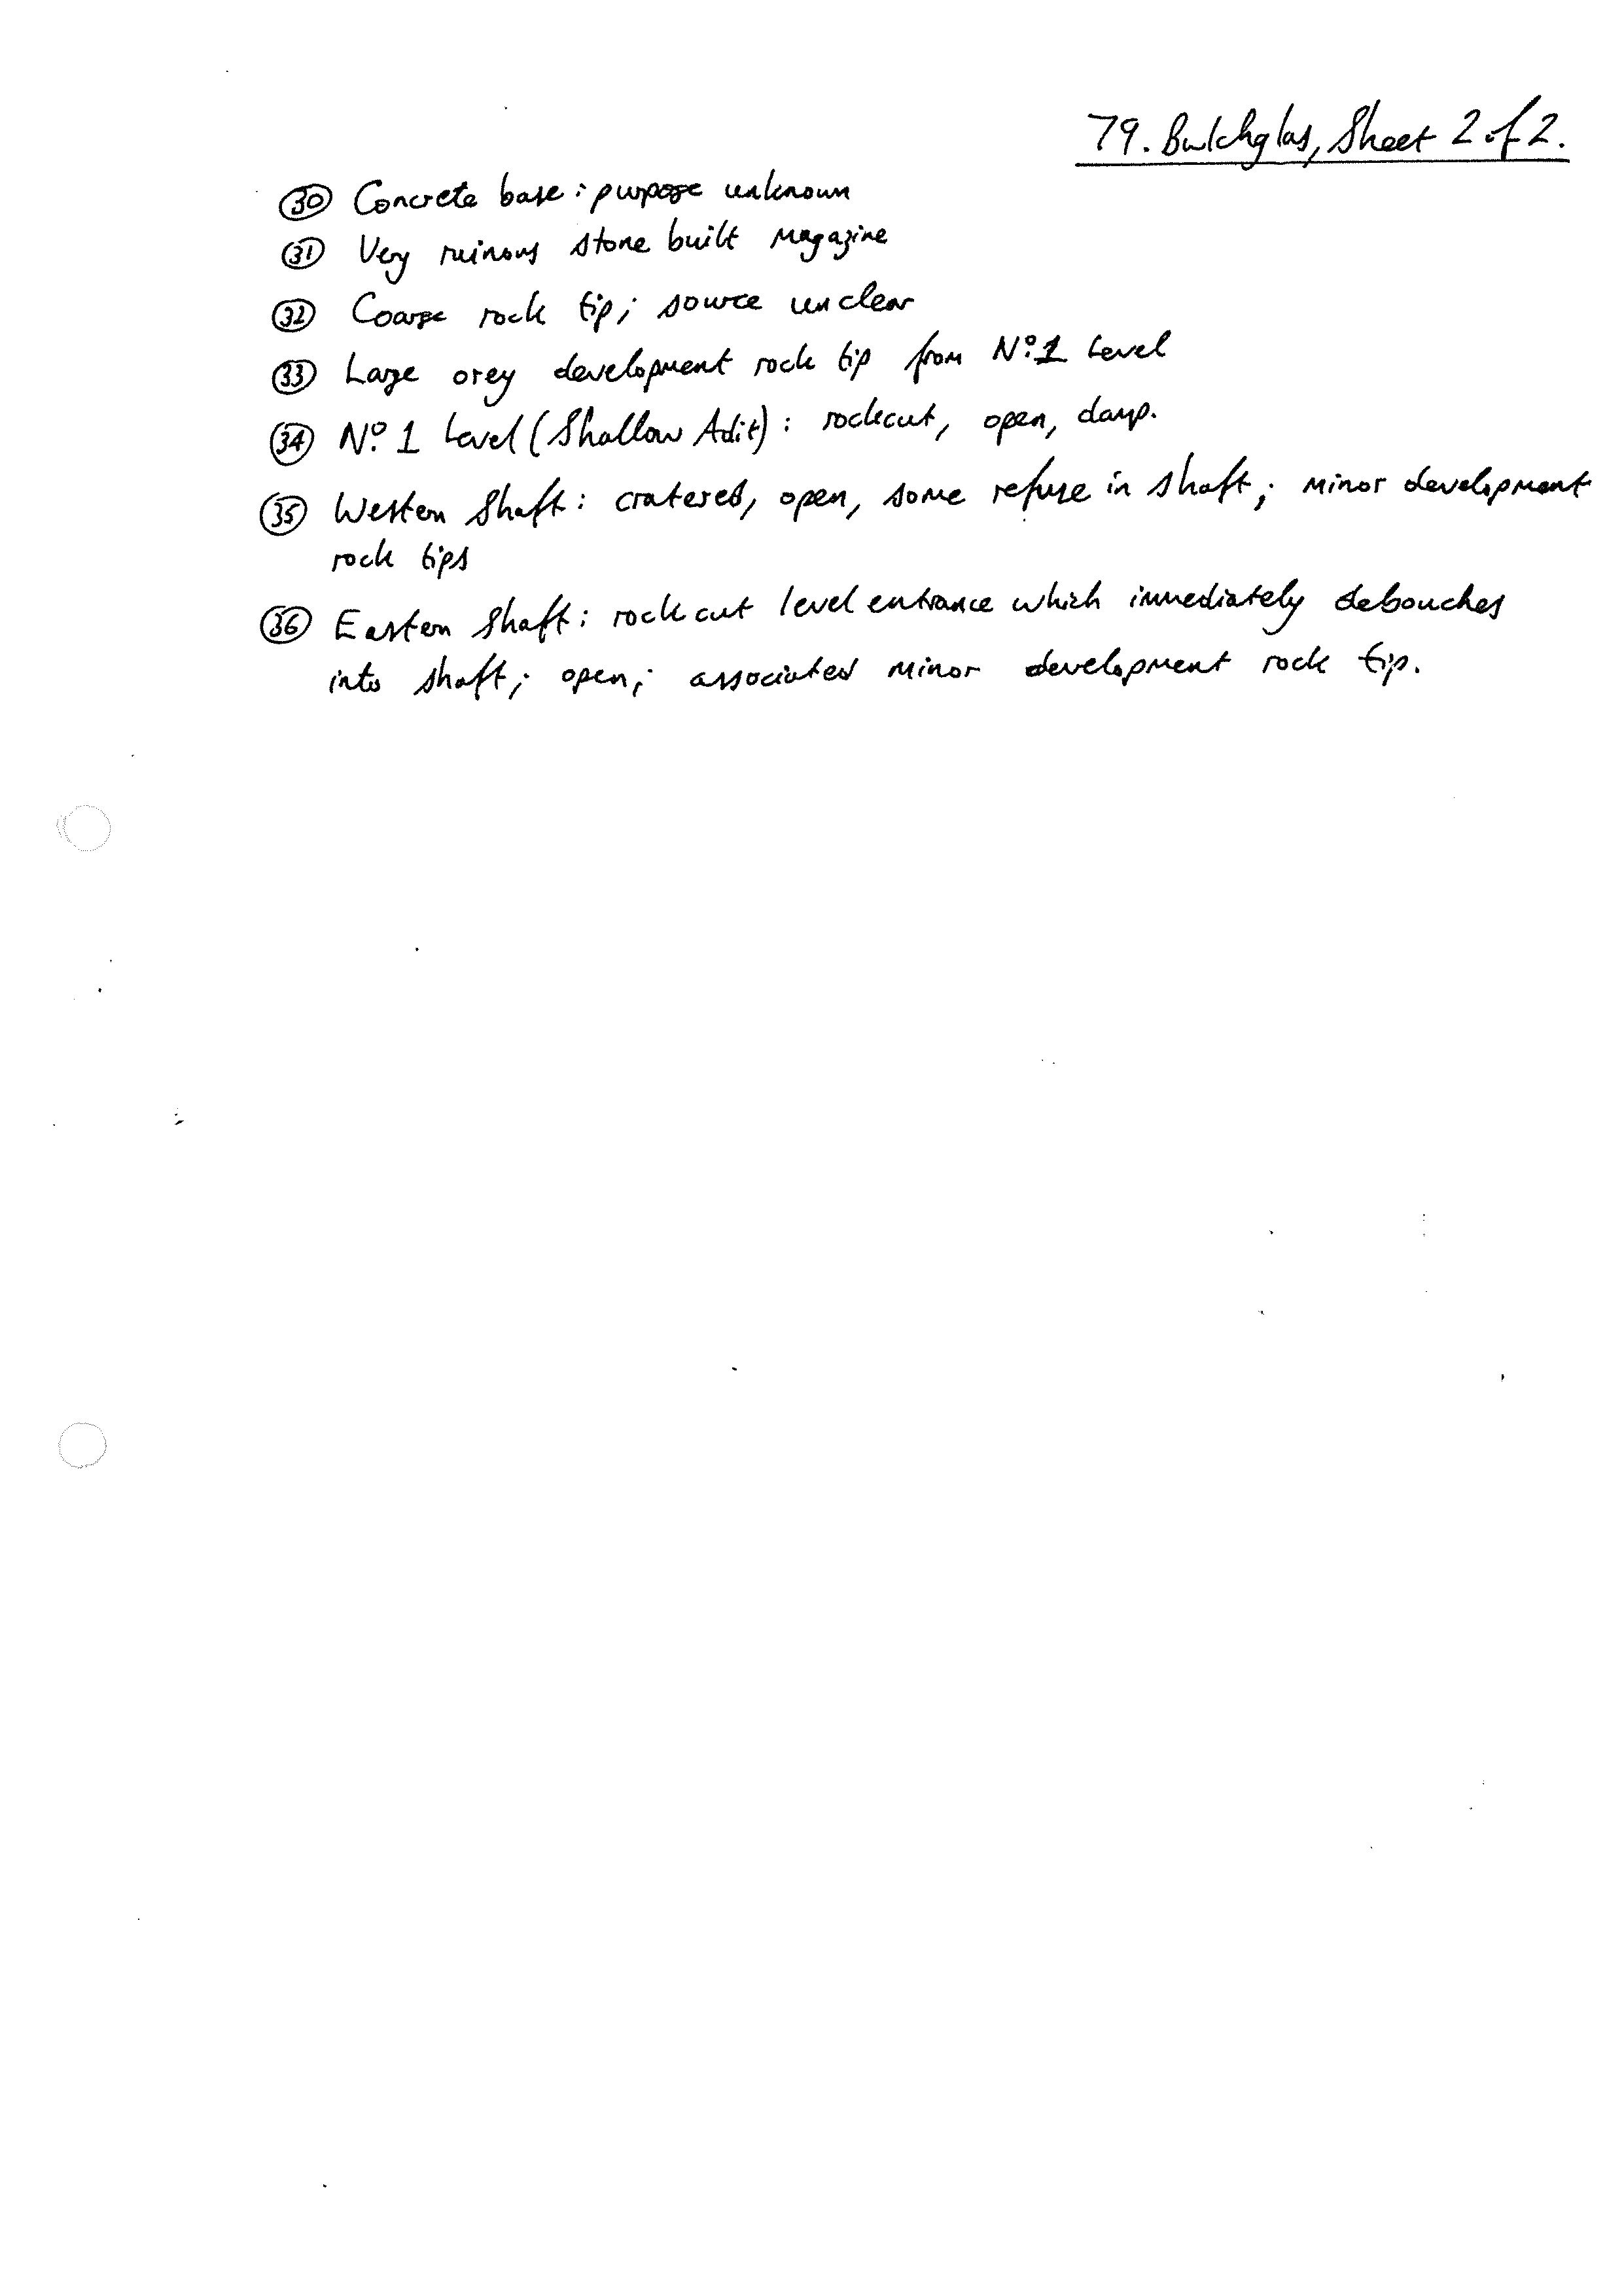 79. Bwlchglas, Sheet 2 of 2.
㉚ Concrete base: purpose unknown
㉛ Very ruinous stone built magazine
㉜ Coarse rock tip; source unclear
㉝ Large orey development rock tip from Nº.1 Level
㉞ Nº.1 Level (Shallow Adit): rockcut, open, damp.
㉟ Western Shaft: cratered, open, some refuse in shaft; minor development
rock tips
㊱ Eastern Shaft: rockcut level entrance which immediately debouches
into shaft; open; associated minor development rock tip.